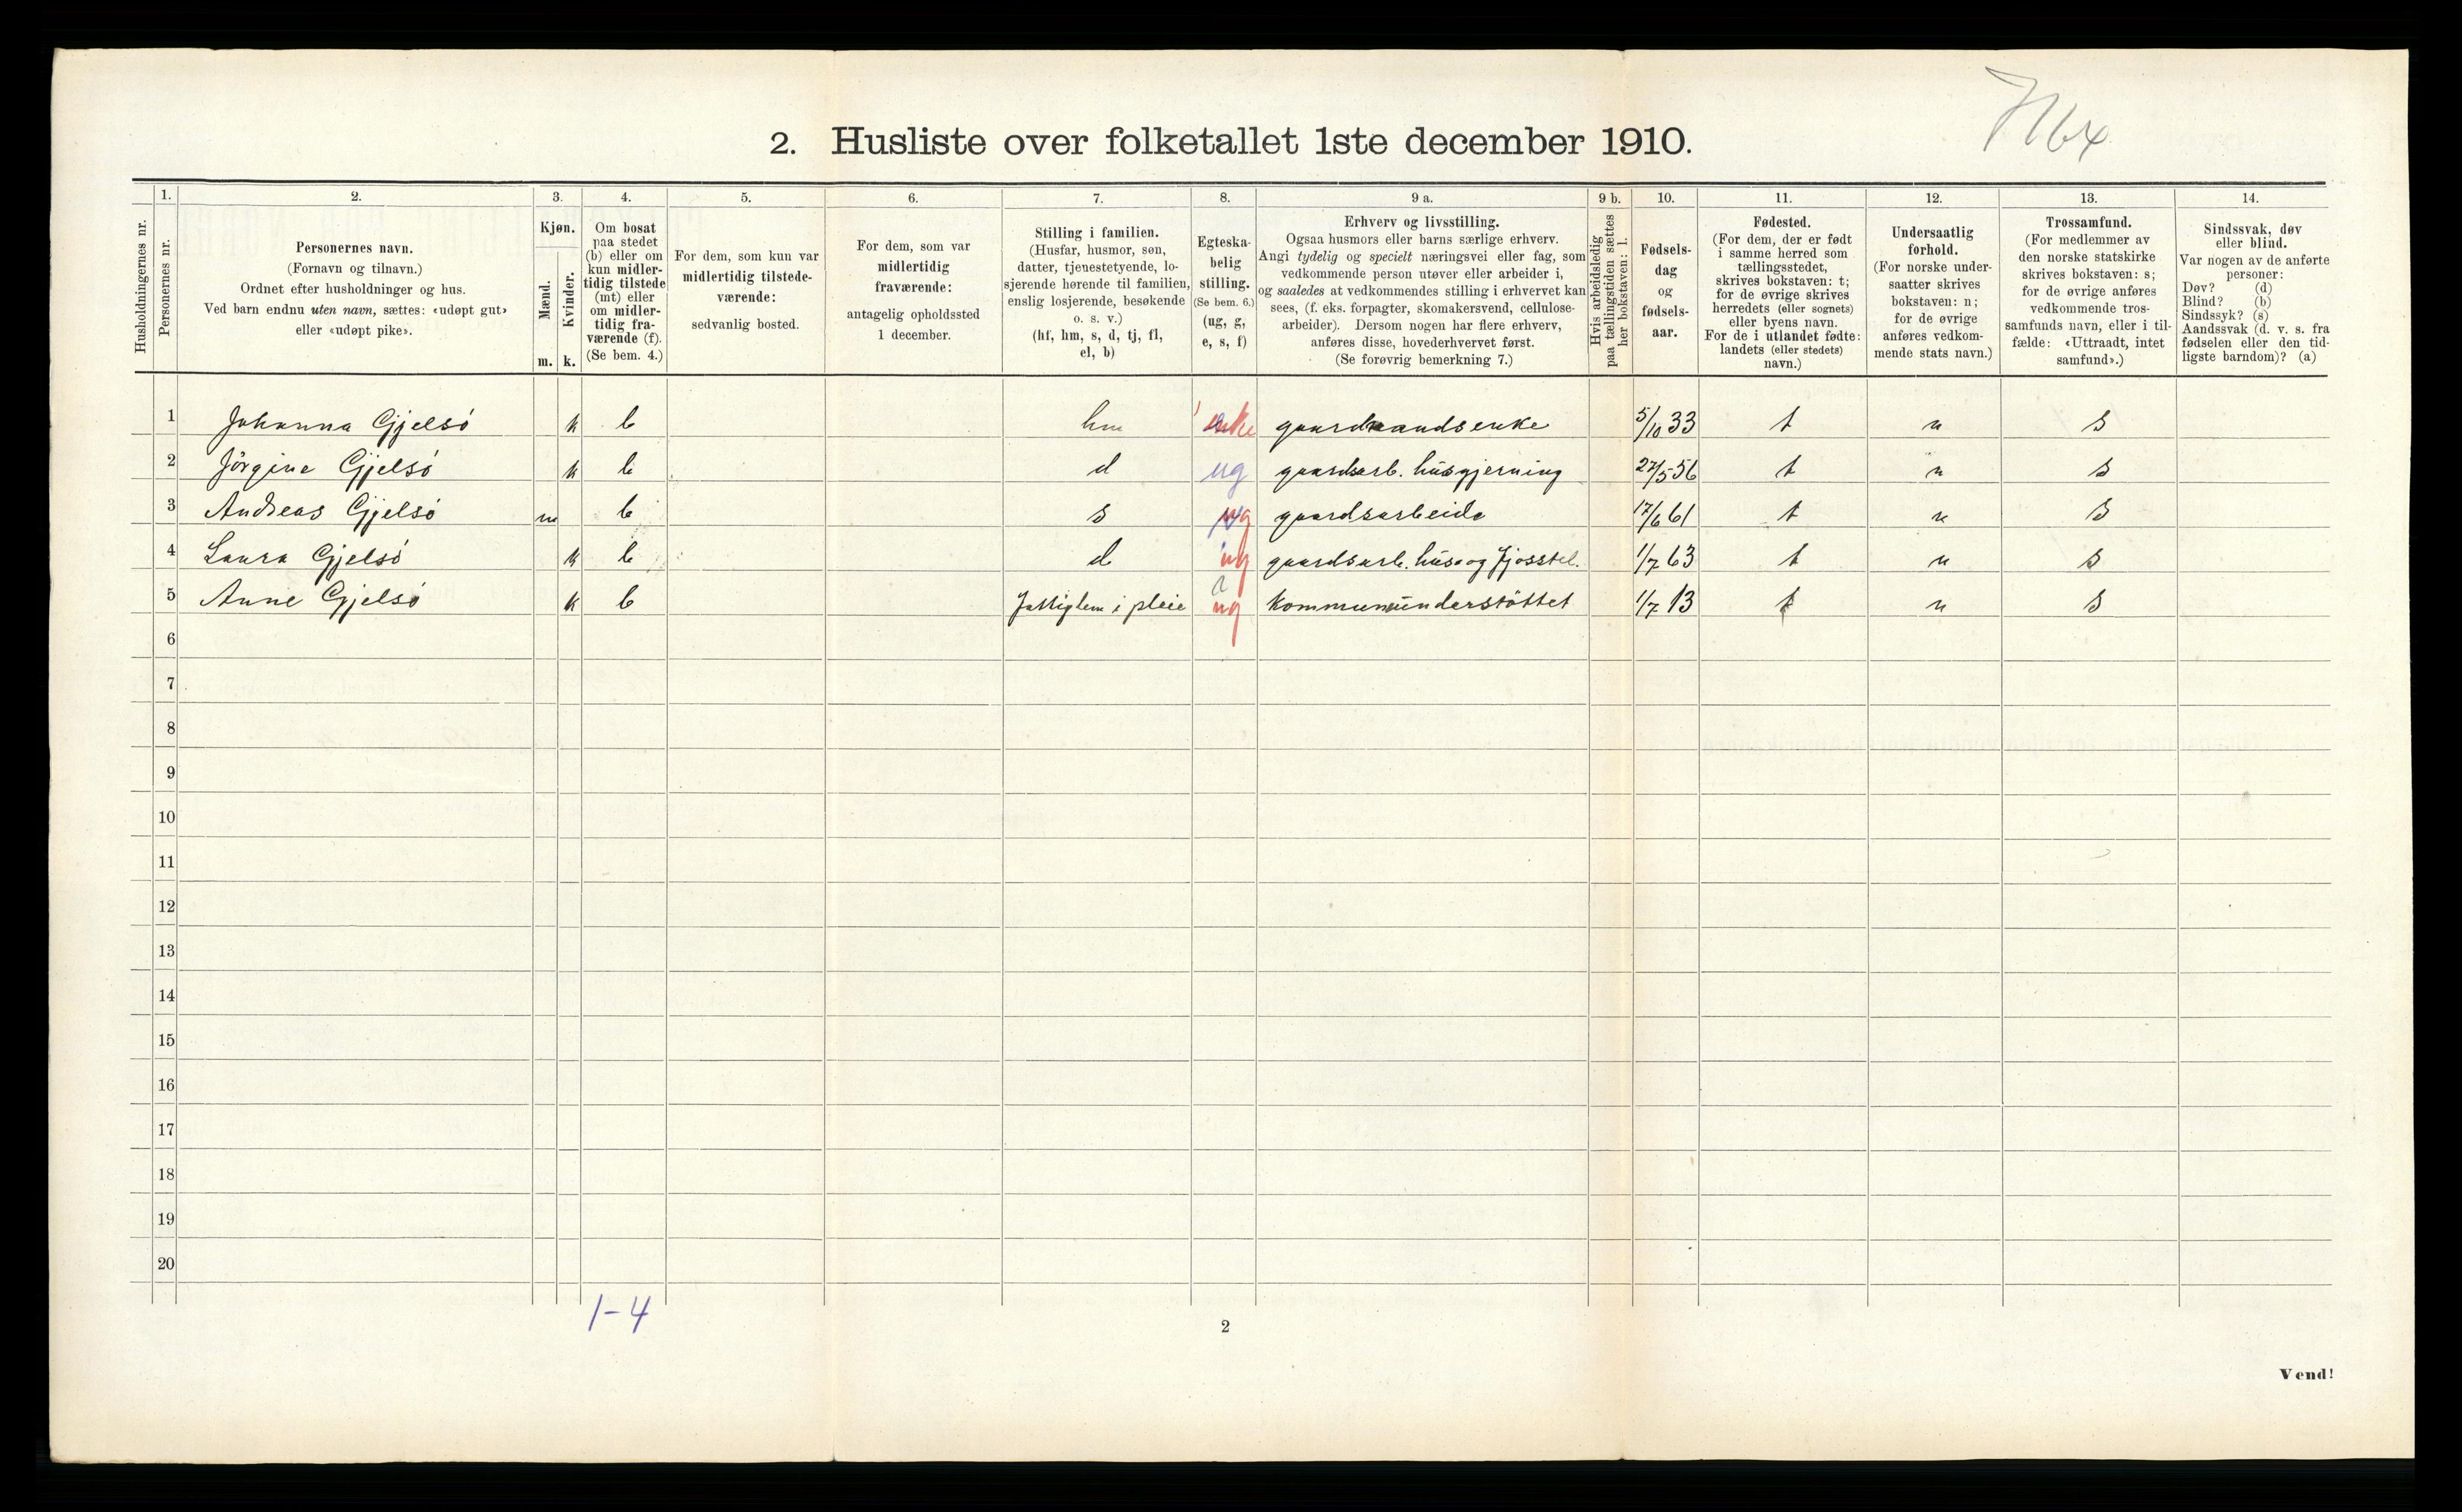 2. Husliste over folketallet 1ste december 1910.
Husholdningernes nr.
1. Personernes nr.
2. Personernes navn. (Fornavn og tilnavn.) Ordnet efter husholdninger og hus. Ved barn endnu uten navn, sættes: «udøpt gut» eller «udøpt pike».
3. Kjøn. Mænd. m. Kvinder. k.
4. Om bosat paa stedet (b) eller om kun midler-tidig tilstede (mt) eller om midler-tidig fra-værende (f). (Se bem. 4.)
5. For dem, som kun var midlertidig tilstede-værende: sedvanlig bosted.
6. For dem, som var midlertidig fraværende: antagelig opholdssted 1 december.
7. Stilling i familien. (Husfar, husmor, søn, datter, tjenestetyende, lo-sjerende hørende til familien, enslig losjerende, besøkende o. s. v.) (hf, hm, s, d, tj, fl, el, b)
8. Egteska-belig stilling. (Se bem. 6.) (ug, g, e, s, f)
9 a. Erhverv og livsstilling. Ogsaa husmors eller barns særlige erhverv. Angi tydelig og specielt næringsvei eller fag, som vedkommende person utøver eller arbeider i, og saaledes at vedkommendes stilling i erhvervet kan sees, (f. eks. forpagter, skomakersvend, cellulose-arbeider). Dersom nogen har flere erhverv, anføres disse, hovederhvervet først. (Se forøvrig bemerkning 7.)
9 b. Hvis arbeidsledig paa tællingstiden sættes her bokstaven: l.
10. Fødsels-dag og fødsels-aar.
11. Fødested. (For dem, der er født i samme herred som tællingsstedet, skrives bokstaven: t; for de øvrige skrives herredets (eller sognets) eller byens navn. For de i utlandet fødte: landets (eller stedets) navn.)
12. Undersaatlig forhold. (For norske under-saatter skrives bokstaven: n; for de øvrige anføres vedkom-mende stats navn.)
13. Trossamfund. (For medlemmer av den norske statskirke skrives bokstaven: s; for de øvrige anføres vedkommende tros-samfunds navn, eller i til-fælde: «Uttraadt, intet samfund».)
14. Sindssvak, døv eller blind. Var nogen av de anførte personer: Døv? (d) Blind? (b) Sindssyk? (s) Aandssvak (d. v. s. fra fødselen eller den tid-ligste barndom)? (a)
1 Johanna Gjelsö k b hm enke gaardmandsenke 5/10 33 t n s
2 Jörgine Gjelsö k b d ug gaardsarb. husgjerning 27/5 56 t n s
3 Andreas Gjelsö m b s ug gaardsarbeide 17/6 61 t n s
4 Laura Gjelsö k b d ug gaardsarb. hus og fjosstel. 1/7 63 t n s
5 Anne Gjelsö k b Fattiglem i pleie ug Kommuneunderstöttet 1/7 13 t n s
6
7
8
9
10
11
12
13
14
15
16
17
18
19
20
1-4
2
Vend!